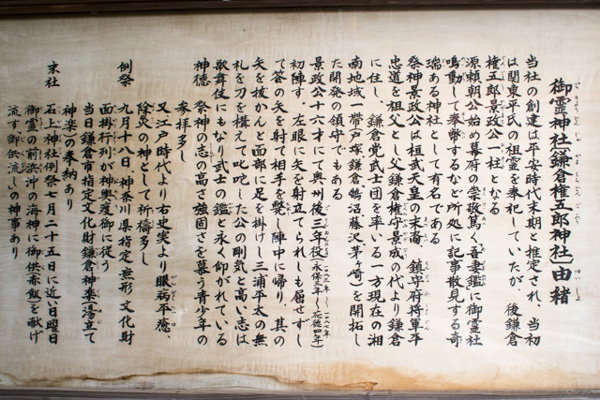 御霊神社(鎌倉権五郎神社)由緒
当社の創建は平安時代末期と推定され、当初
は関東平氏の祖霊を奉祀していたが、後鎌倉
権五郎景政公一柱となる
源頼朝公始め幕府の崇敬篤く吾妻鑑に御霊社
鳴動して奉幣するなど所処に記事散見する奇
瑞ある神社として有名である
祭神景政公は桓武天皇の末裔 鎮守府将軍平
忠道を祖父とし父鎌倉権守景成の代より鎌倉
に住し、鎌倉党武士団を率いる一方現在の湘
南地域一帯(戸塚鎌倉鵠沼藤沢茅ヶ崎)を開拓し
た開発の領守でもある
景政公十六才にて奥州後三年役(永保三年~応徳四年)に
初陣す。左眼に矢を射立てられしも屈せずし
て答の矢を射て相手を斃し陣中に帰り、其の
矢を抜かんと面部に足を掛けし三浦平太の無
礼を刀を構えて叱咤した公の剛気と高い志は
歌舞伎にもなり武士の鑑と永く仰がれている
神徳 祭神の志の高さ強固さを慕う青少年の
参拝多し
又江戸時代より右史実より眼病平癒、
除災の神として祈祷多し
例祭 九月十八日、神奈川県指定無形文化財
面掛行列が神輿渡御に従う
当日鎌倉市指定文化財鎌倉神楽湯立て
神楽の奉納あり
末社 石上神社例祭七月二十五日に近い日曜日
御霊の前浜沖の海神に御供赤飯を献げ
流す御供流しの神事あり